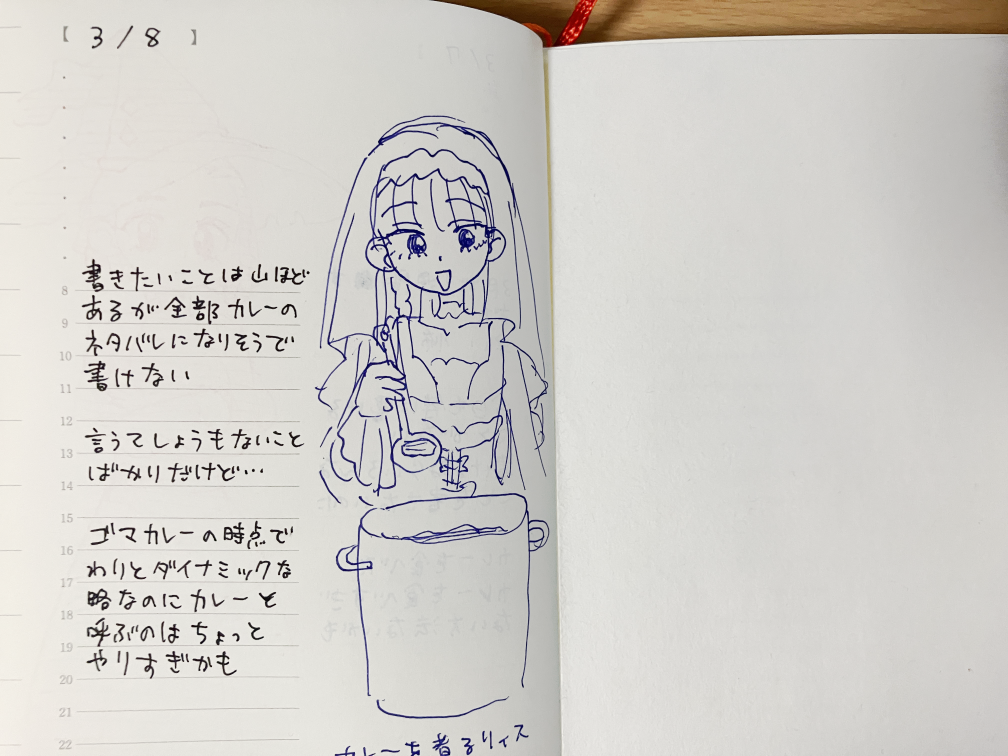 【 3/8 】
書きたいことは山ほど
あるが全部カレーの
ネタバレになりそうで
書けない
言うてしょうもないこと
ばかりだけど…
ゴマカレーの時点で
わりとダイナミックな
略なのにカレーと
呼ぶのはちょっと
やりすぎかも
カレーを着るリィス
8
9
10
11
12
13
14
15
16
17
18
19
20
21
22